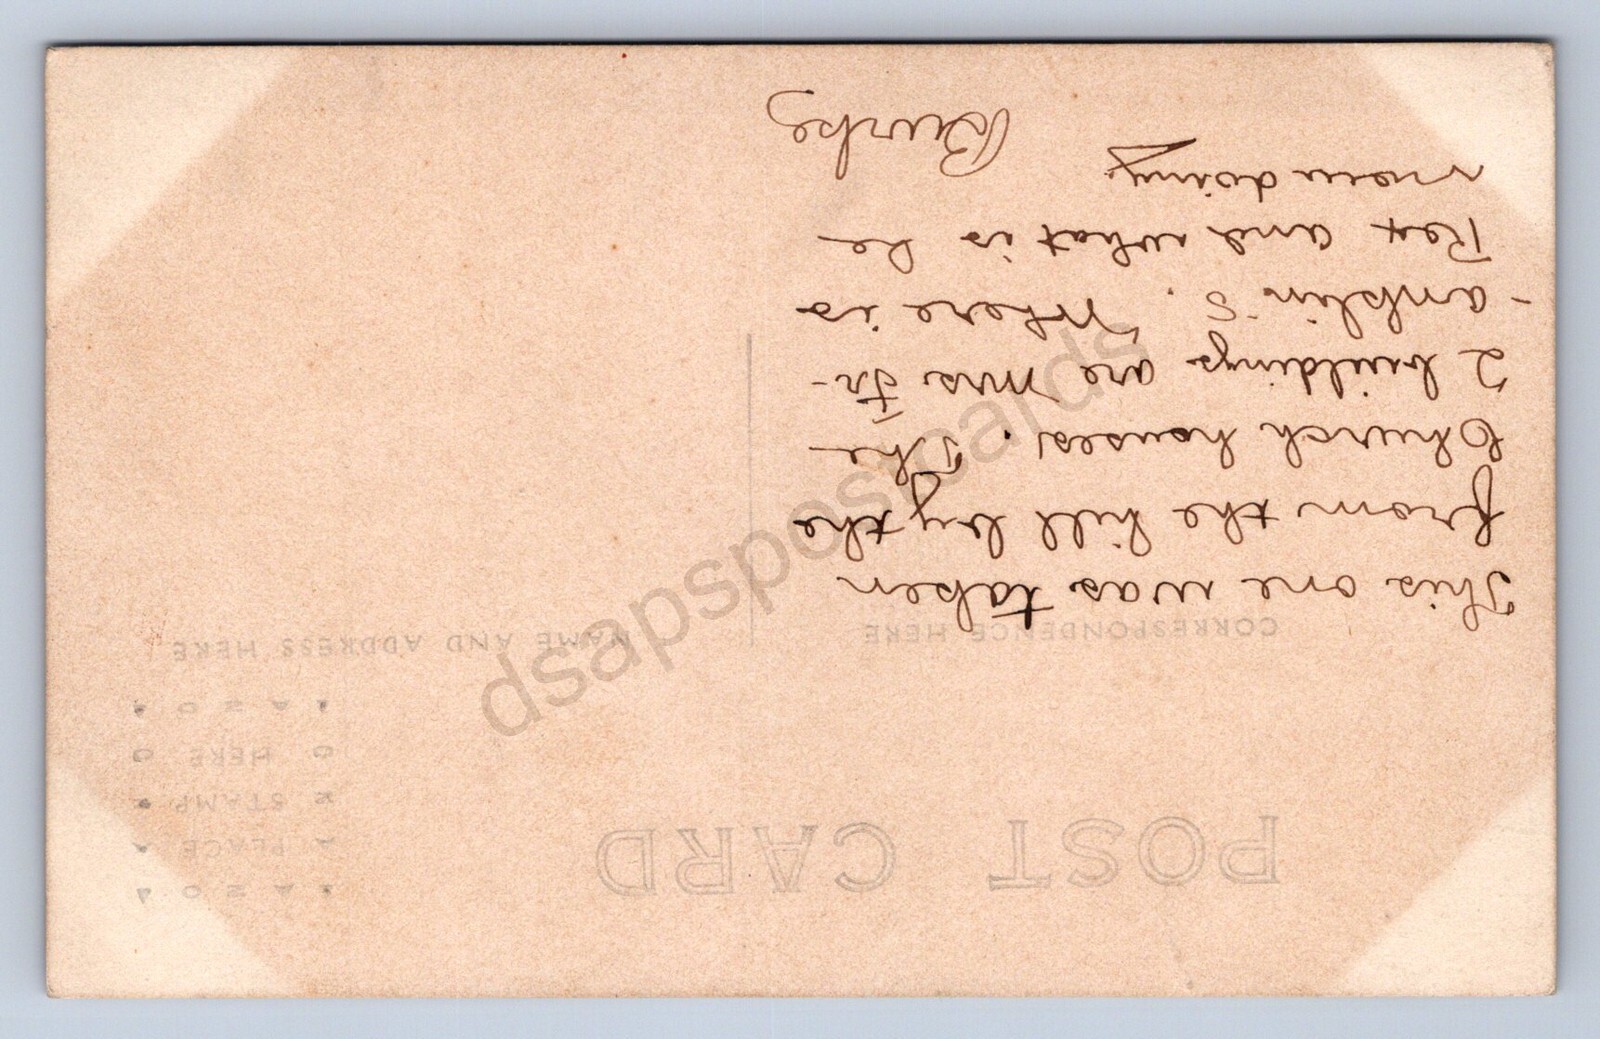 POST CARD
AZO
PLACE
STAMP
HERE
AZO
CORRESPONDENCE HERE
NAME AND ADDRESS HERE
This one was taken
from the hill by the
Church houses. The
2 buildings are Mrs Fr-
-anklin S. Where is
Rex and what is he
now doing
Burke
dsapspostcards